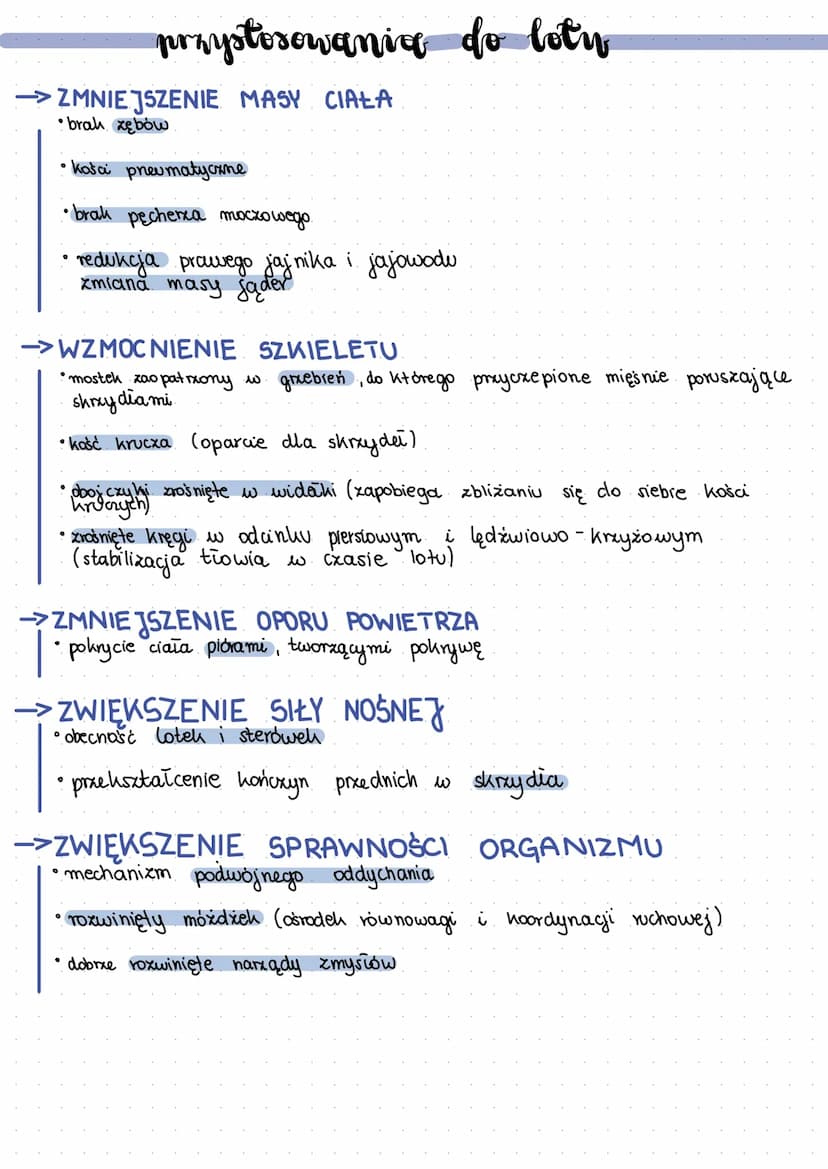 przystosowania do lotu
-> ZMNIEJSZENIE MASY CIAŁA
• brak zębów
• kości pneumatyczne
• brak pęcherza moczowego
• redukcja prawego jajnika i jajowodu
zmiana masy jąder
-> WZMOCNIENIE SZKIELETU
• mostek zaopatrzony w grzebień, do którego przyczepione mięśnie poruszające
skrzydłami
• kość krucza (oparcie dla skrzydeł)
• obojczyki zrośnięte w widełki (zapobiega zbliżaniu się do siebie kości
kruczych)
• zrośnięte kręgi w odcinku piersiowym i lędźwiowo - krzyżowym
(stabilizacja tłowia w czasie lotu)
-> ZMNIEJSZENIE OPORU POWIETRZA
• pokrycie ciała piórami, tworzącymi pokrywę
-> ZWIĘKSZENIE SIŁY NOŚNEJ
• obecność lotek i sterówek
• przekształcenie kończyn przednich w skrzydła
-> ZWIĘKSZENIE SPRAWNOŚCI ORGANIZMU
• mechanizm podwójnego oddychania
• rozwinięty móżdżek (ośrodek równowagi i koordynacji ruchowej)
• dobrze rozwinięte narządy zmysłów